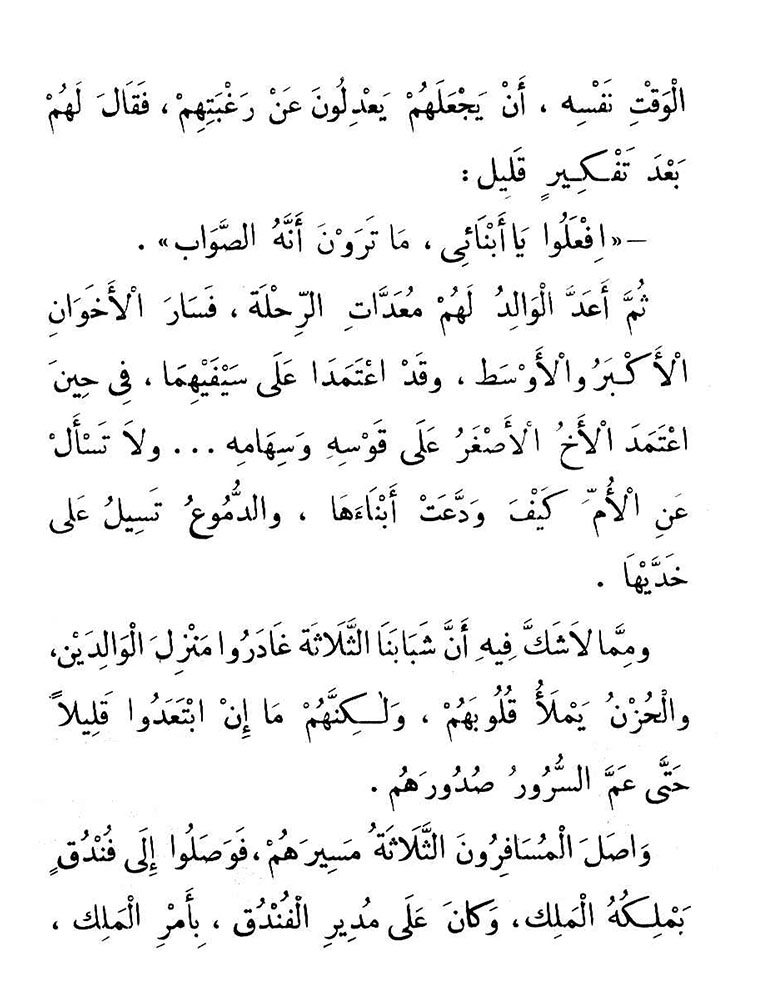 الْوَقْتِ نَفْسِه ، أَنْ يَجْعَلَهُمْ يَعْدِلُونَ عَنْ رَغْبَتِهِمْ ، فَقَالَ لَهُمْ
بَعْدَ تَفْكِيرٍ قَلِيل :
– «اِفْعَلُوا يَا أَبْنَائِى ، مَا تَرَوْنَ أَنَّهُ الصَّوَاب» .
ثُمَّ أَعَدَّ الْوَالِدُ لَهُمْ مُعَدَّاتِ الرِّحْلَة ، فَسَارَ الْأَخَوَانِ
الْأَكْبَرُ والْأَوْسَط ، وقَدْ اعْتَمَدَا عَلَى سَيْفَيْهِمَا ، فِى حِينَ
اعْتَمَدَ الْأَخُ الْأَصْغَرُ عَلَى قَوْسِهِ وَسِهَامِه ... ولاَ تَسْأَلْ
عَنِ الْأُمِّ كَيْفَ وَدَّعَتْ أَبْنَاءَهَا ، والدُّمُوعُ تَسِيلُ عَلَى
خَدَّيْهَا .
ومِمَّا لاَشَكَّ فِيهِ أَنَّ شَبَابَنَا الثَّلَاثَة غَادَرُوا مَنْزِلَ الْوَالِدَيْن،
والْحُزْنُ يَمْلَأُ قُلُوبَهُمْ ، وَلَـٰكِنَّهُمْ مَا إِنْ ابْتَعَدُوا قَلِيلاً
حَتَّى عَمَّ السُّرُورُ صُدُورَهُم .
وَاصَلَ الْمُسَافِرُونَ الثَّلَاثَةُ مَسِيرَهُمْ،فَوَصَلُوا إِلَى فُنْدُقٍ
يَمْلِكُهُ الْمَلِك، وَكَانَ عَلَى مُدِيرِ الْفُنْدُق ، بِأَمْرِ الْمَلِك ،